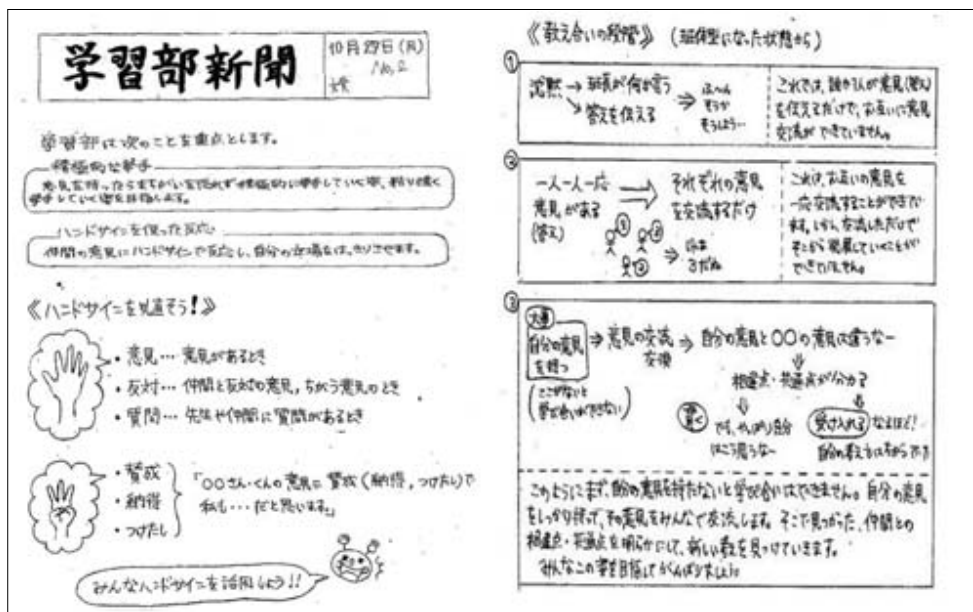 学習部新聞
10月27日(月)
No.2
学習部は次のことを重点とします。
積極的な挙手
意見を持ったらまちがいを恐れず積極的に挙手していく姿、粘り強く
挙手していく姿を目指します。
ハンドサインを使った反応
仲間の意見にハンドサインで反応し、自分の立場をはっきりさせます。
《ハンドサインを見直そう!》
・意見…意見があるとき
・反対…仲間と反対の意見,ちがう意見のとき
・質問…先生や仲間に質問があるとき
・賛成
・納得
・つけたし
「〇〇さん・くんの意見に賛成(納得,つけたし)で
私も…だと思います。」
みんなハンドサインを活用しよう!!
《教え合いの段階》(班体型になった状態から)
①
沈黙→班長が何か言う
答えを伝える
ふ〜ん
そうか
そうしよう…
これでは、誰か1人が意見(答え)
を伝えるだけで、お互いに意見
交流ができていません。
②
一人一人一応
意見がある
(答え)
それぞれの意見
を交流するだけ
①
②
③
これは、お互いの意見を
一応交流することができてい
ます。しかし、交流しただけで
そこから発展していくことが
できていません。
③
大事
自分の意見
を持つ
(ここがないと
学び合いができない)
⇒意見の交流
⇒自分の意見と〇〇の意見は違うなー
相違点・共通点が分かる
でも、やっぱり自分
はこう思うなー
受け入れる なるほど!
このようにまず、自分の意見を持たないと学び合いはできません。自分の意見
をしっかり持って、その意見をみんなで交流します。そこで見つかった、仲間との
相違点・共通点を明らかにして、新しい考えを見つけていきます。
みんなこの姿を目指してがんばりましょう